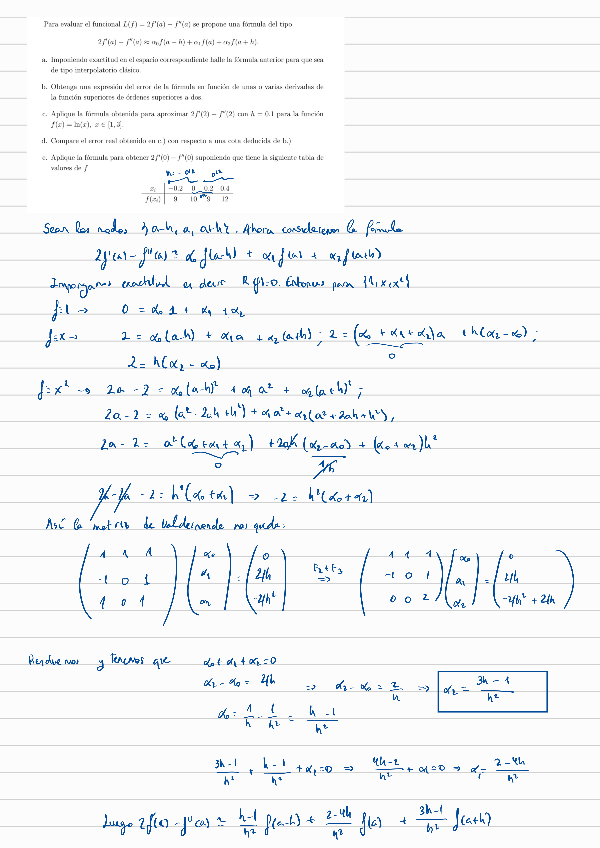 Para evaluar el funcional L(f) = 2f'(a) − f''(a) se propone una fórmula del tipo
2f'(a) − f''(a) ≈ α₀f(a − h) + α₁f(a) + α₂f(a + h).
a. Imponiendo exactitud en el espacio correspondiente halle la fórmula anterior para que sea
de tipo interpolatorio clásico.
b. Obtenga una expresión del error de la fórmula en función de unas o varias derivadas de
la función superiores de órdenes superiores a dos.
c. Aplique la fórmula obtenida para aproximar 2f'(2) − f''(2) con h = 0.1 para la función
f(x) = ln(x), x ∈ [1, 3].
d. Compare el error real obtenido en c.) con respecto a una cota deducida de b.)
e. Aplique la fórmula para obtener 2f'(0) − f''(0) suponiendo que tiene la siguiente tabla de
valores de f
xᵢ | −0.2 0 0.2 0.4
f(xᵢ) | 9 10 9 12
Sean los nodos {a-h, a, a+h}. Ahora consideremos la fórmula
2f'(a) - f''(a) ≈ α₀ f(a-h) + α₁ f(a) + α₂ f(a+h)
Impongamos exactitud es decir R(f)=0. Entonces para {1, x, x²}
f=1 → 0 = α₀ 1 + α₁ + α₂
f=x → 2 = α₀(a-h) + α₁a + α₂(a+h) ; 2 = (α₀ + α₁ + α₂)a + h(α₂-α₀) ;
0
2 = h(α₂ - α₀)
f=x² → 2a - 2 = α₀(a-h)² + α₁ a² + α₂(a+h)² ;
2a - 2 = α₀(a² - 2ah + h²) + α₁a² + α₂(a² + 2ah + h²),
2a - 2 = a²(α₀+α₁+α₂) + 2ah (α₂-α₀) + (α₀+α₂)h²
0
2a - 2a - 2 = h²(α₀+α₂) → -2 = h²(α₀+α₂)
Así la matriz de nos queda:
( 1 1 1 ; -1 0 1 ; 1 0 1 ) ( α₀ ; α₁ ; α₂ ) = ( 0 ; 2/h ; -2/h² ) F₂+F₃ ⇒ ( 1 1 1 ; -1 0 1 ; 0 0 2 ) ( α₀ ; α₁ ; α₂ ) = ( 0 ; 2/h ; -2/h² + 2/h )
y tenemos que α₀ + α₁ + α₂ = 0
α₂ - α₀ = 2/h ⇒ α₂ - α₀ = 2/h ⇒ α₂ = (3h - 1)/h²
α₀ = 1/h - 1/h² = (h - 1)/h²
(3h-1)/h² + (h-1)/h² + α₁ = 0 ⇒ (4h-2)/h² + α₁ = 0 → α₁ = (2-4h)/h²
Luego 2f'(a) - f''(a) ≈ (h-1)/h² f(a-h) + (2-4h)/h² f(a) + (3h-1)/h² f(a+h)